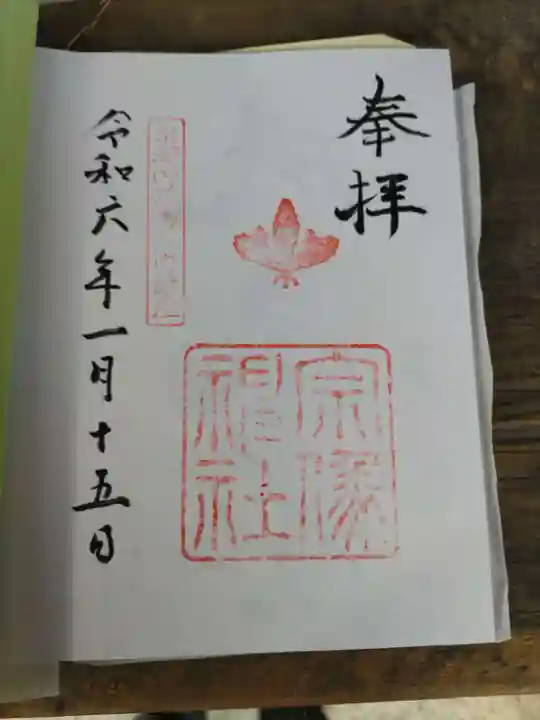 奉拝
宗像
神社
令和六年一月十五日